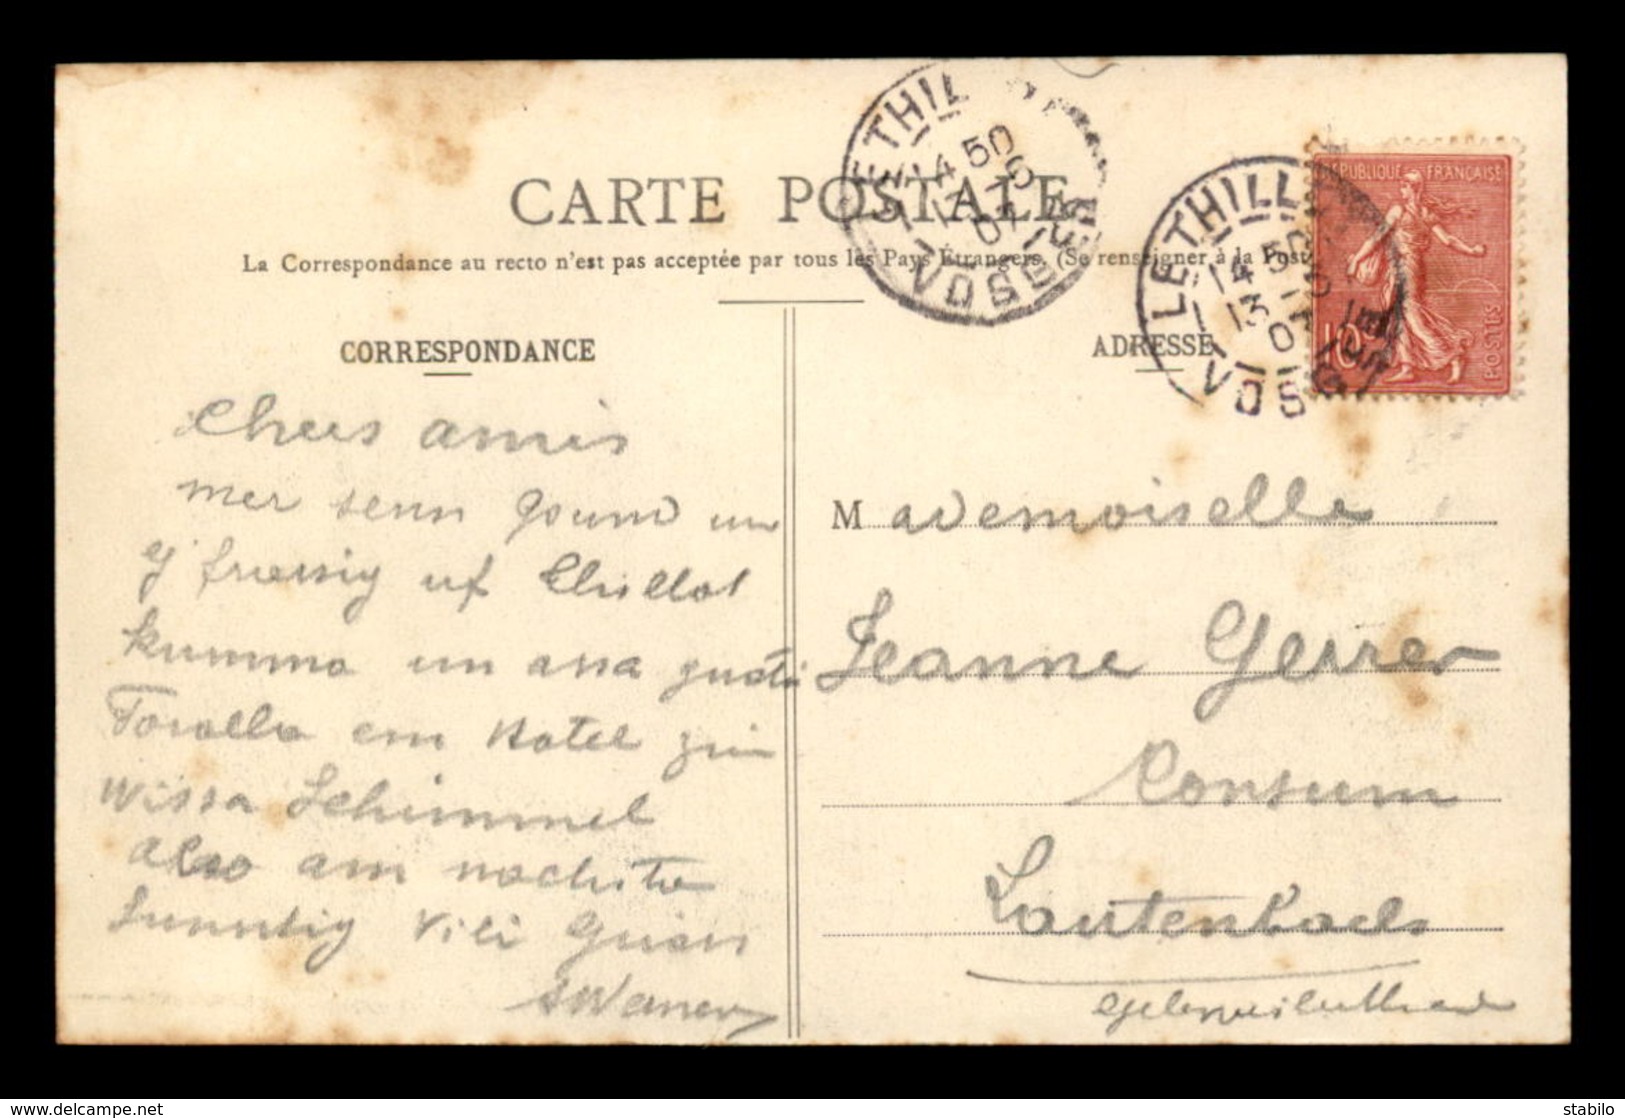 CARTE POSTALE
La Correspondance au recto n'est pas acceptée par tous les Pays Étrangers. (Se renseigner à la Poste
CORRESPONDANCE
ADRESSE
LE THILLOT
14 50
VOSGES
LE THILLOT
14 50
13
VOSGES
RÉPUBLIQUE FRANÇAISE
10
POSTES
Chers amis
mer senn gsund un
frassig uf
kumma un assa
em Hotel
wissa Schimmel
also am nachsta
Sunntig Vili
Mademoiselle
Jeanne Gerrer
Consum
Lautenbach
Gebweilerthal
delcampe.net
stabilo